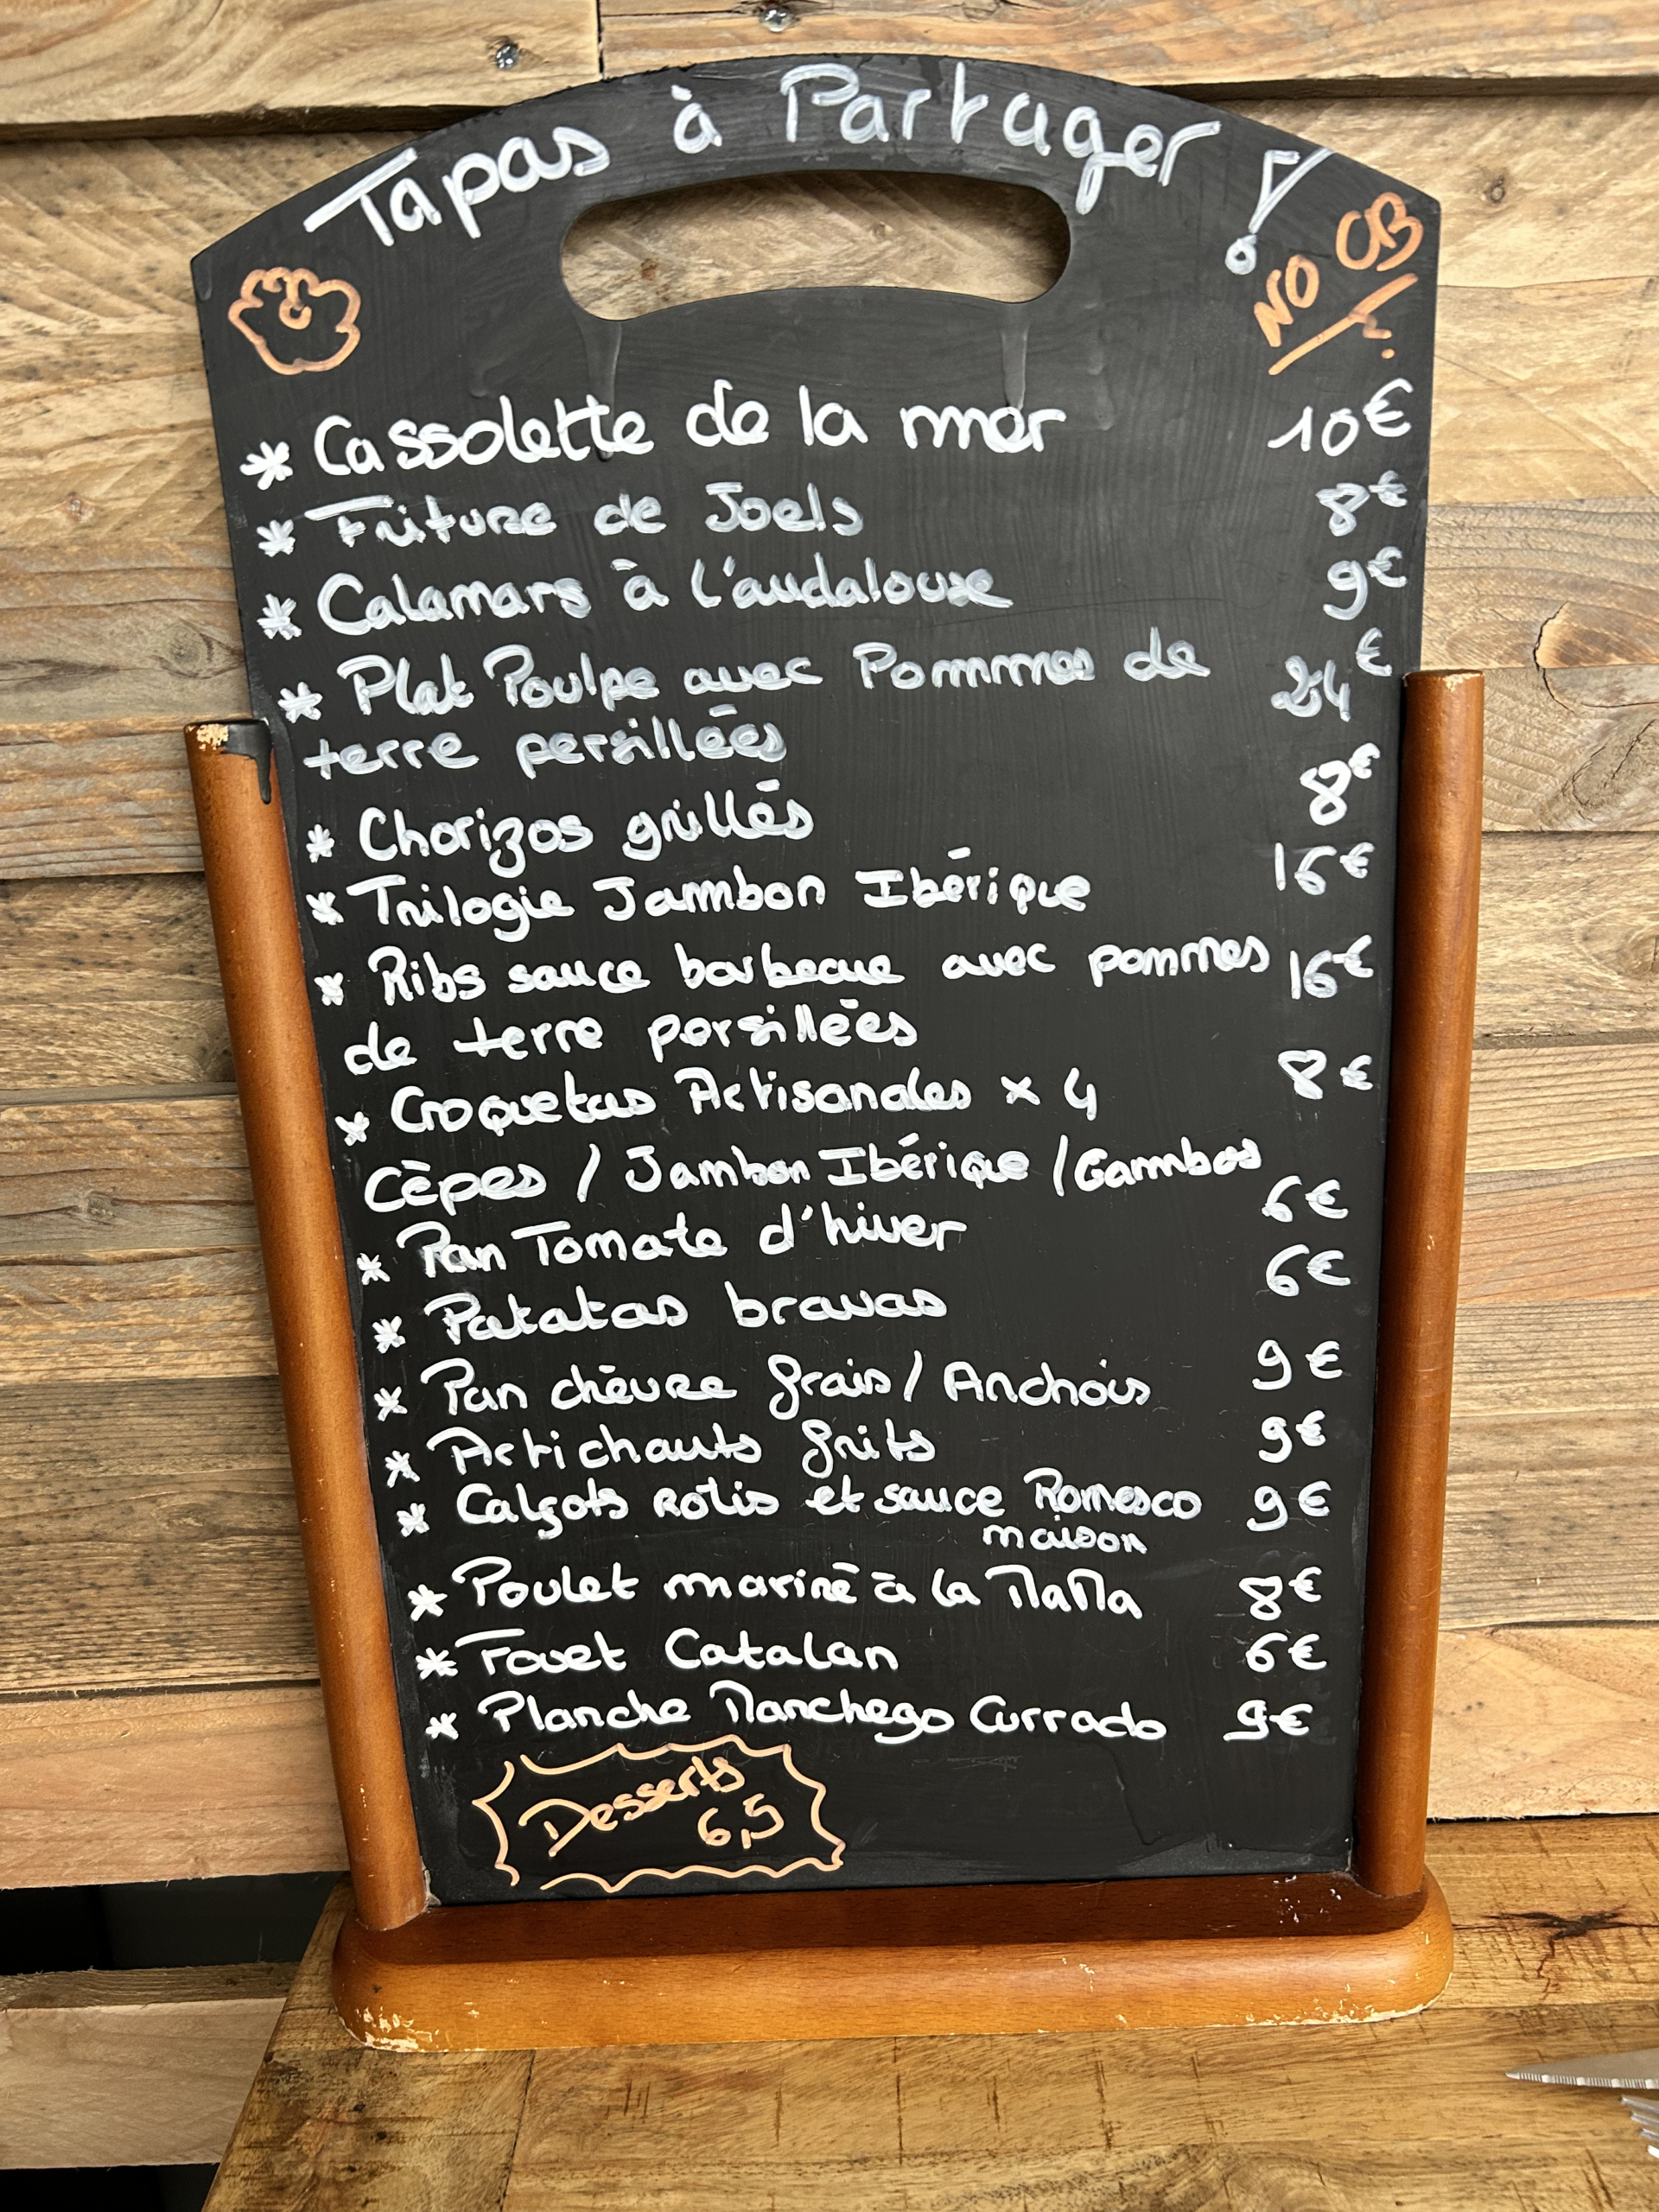 Tapas à Partager !
NO CB
* Cassolette de la mer 10€
* Friture de Joels 8€
* Calamars à l'andalouse 9€
* Plat Poulpe avec Pommes de 24€
terre persillées
* Chorizos grillés 8€
* Trilogie Jambon Ibérique 16€
* Ribs sauce barbecue avec pommes 16€
de terre persillées
* Croquetas Artisanales x 4 8€
Cèpes / Jambon Ibérique / Gambas
* Pan Tomate d'hiver 6€
* Patatas bravas 6€
* Pan chèvre frais / Anchois 9€
* Artichauts frits 9€
* Calçots rôtis et sauce Romesco 9€
maison
* Poulet mariné à la MaMa 8€
* Fouet Catalan 6€
* Planche Manchego Currado 9€
Desserts
6,5